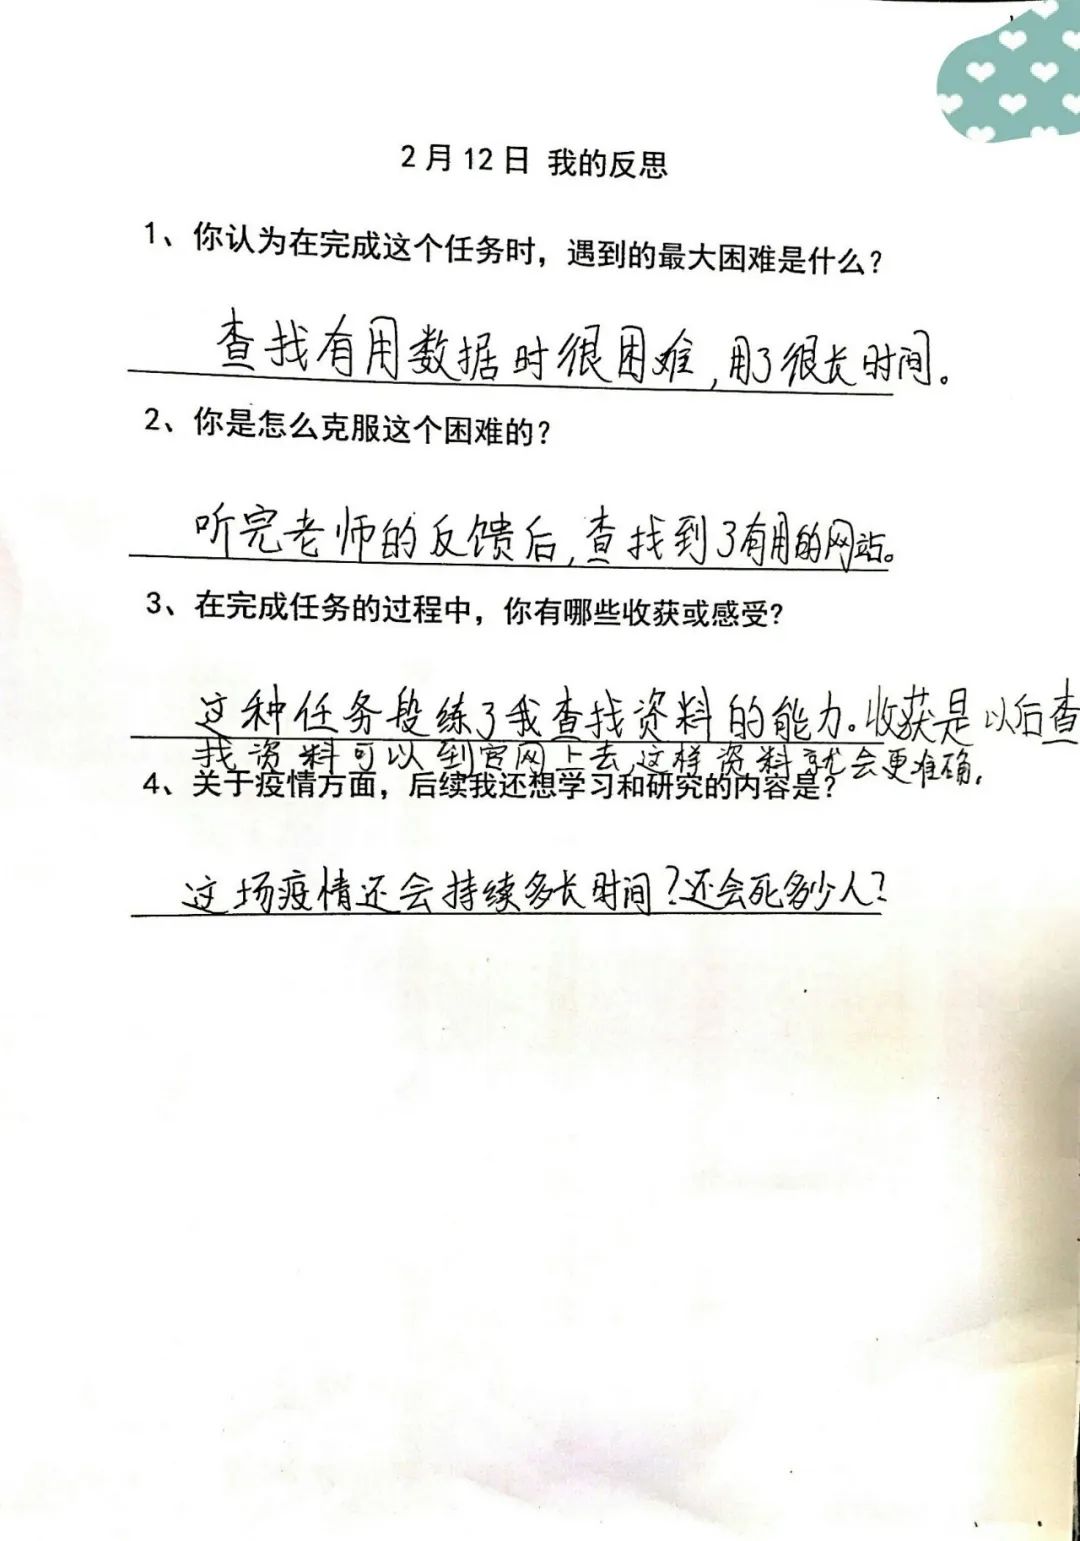 2月12日 我的反思
1、你认为在完成这个任务时，遇到的最大困难是什么？
查找有用数据时很困难,用了很长时间。
2、你是怎么克服这个困难的？
听完老师的反馈后,查找到了有用的网站。
3、在完成任务的过程中，你有哪些收获或感受？
这种任务段练了我查找资料的能力。收获是以后查
找资料可以到官网上去,这样资料就会更准确.
4、关于疫情方面，后续我还想学习和研究的内容是？
这场疫情还会持续多长时间?还会死多少人?